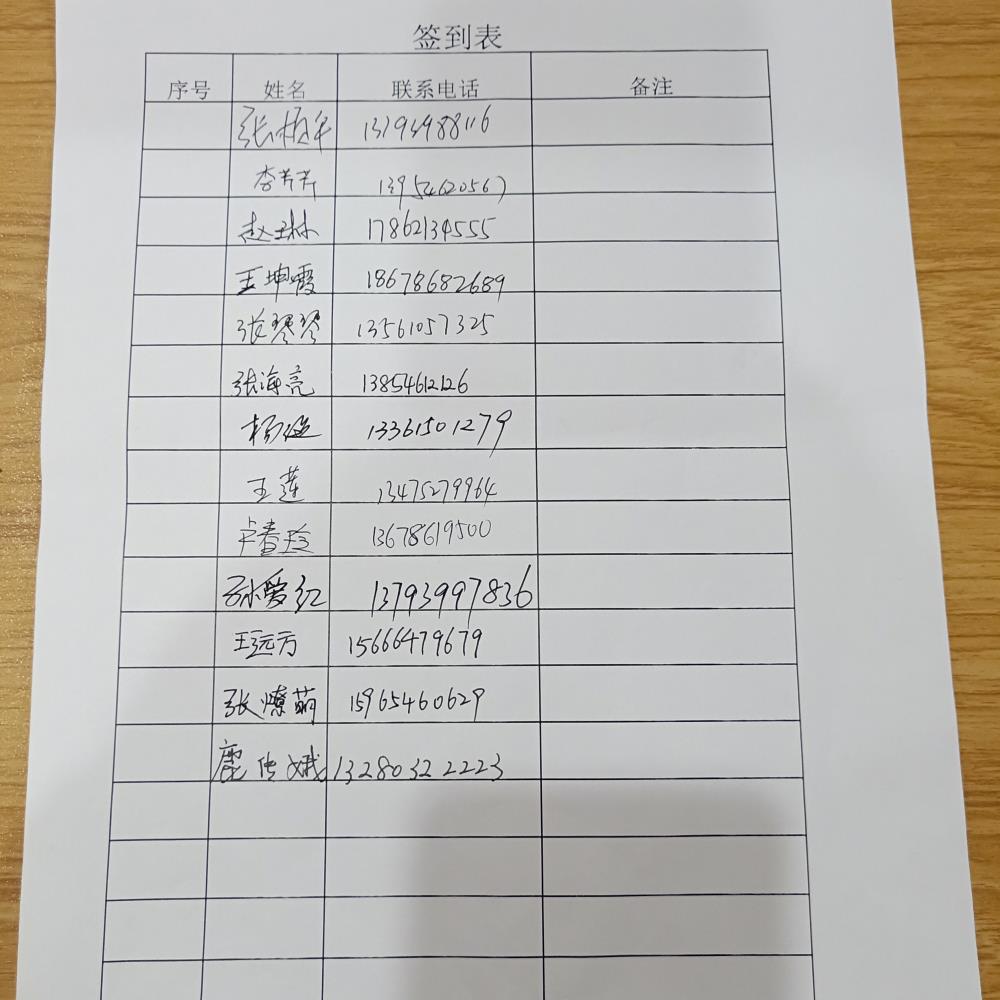 签到表
序号 姓名 联系电话 备注
13793988116
李芳芳 13954620567
赵玉林 17862134555
王坤霞 18678682689
张琴琴 13561057325
张海亮 13854612126
杨 13361501279
王莲 13475279964
卢春玲 13678619500
孙爱红 13793997836
王远方 15666479679
张燎萌 15965460629
鹿传娥 13280322223